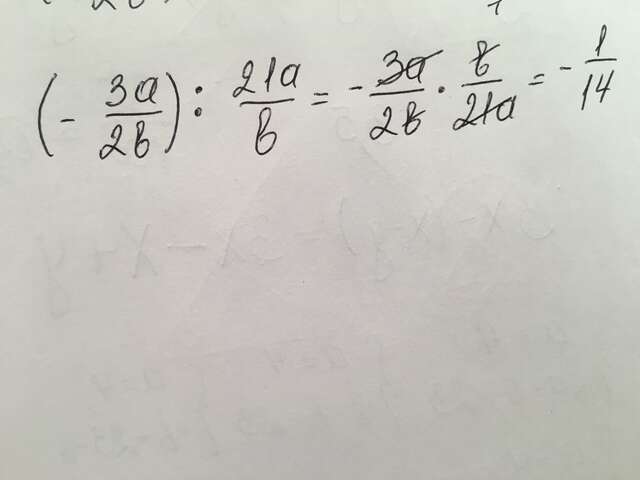 (- 3a/2b) : 21a/b = - 3a/2b · b/21a = - 1/14